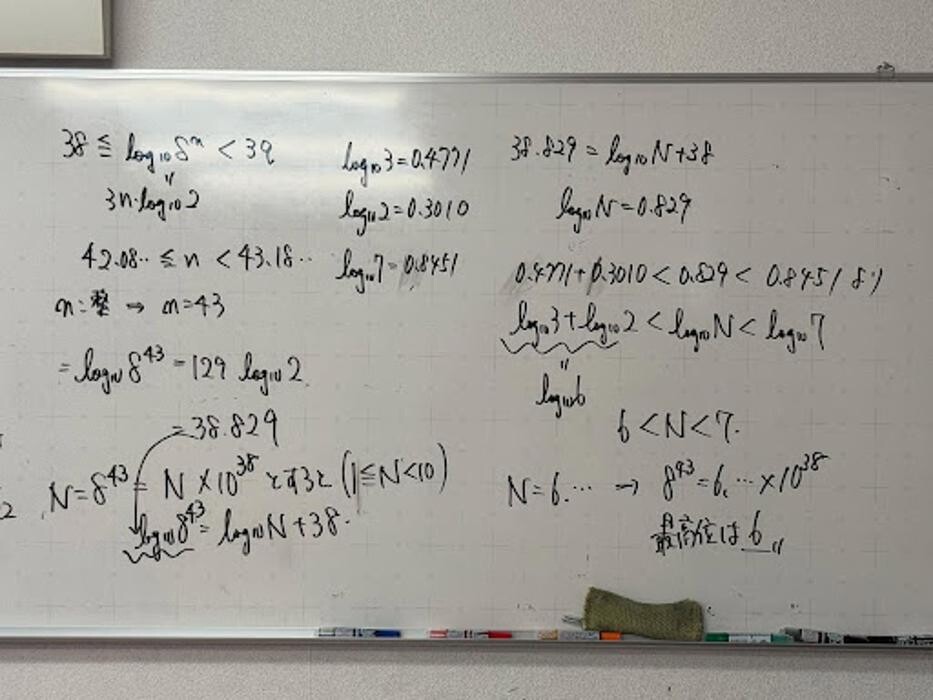 38 ≦ log₁₀8ⁿ < 39
〃
3n・log₁₀2
42.08‥ ≦ n < 43.18‥
n:整 → n=43
= log₁₀8⁴³ = 129 log₁₀2
= 38.829
N = 8⁴³ = N × 10³⁸ とすると (1≦N<10)
log₁₀8⁴³ = log₁₀N + 38.
log₁₀3 = 0.4771
log₁₀2 = 0.3010
log₁₀7 = 0.8451
38.829 = log₁₀N + 38
log₁₀N = 0.829
0.4771 + 0.3010 < 0.829 < 0.8451 より
log₁₀3 + log₁₀2 < log₁₀N < log₁₀7
〃
log₁₀6
6 < N < 7.
N = 6.… → 8⁴³ = 6.… × 10³⁸
最高位は 6〃
2